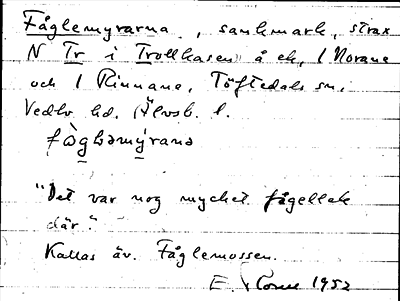 Fåglemyrarna, sankmark, strax
N Tr i Trollhasen å ek, 1 Norane
och 1 Rinnane, Töftedals sn.
Vedbo hd. Älvsb. l.
fo̊gləmýrana
"Det var nog mycket fågellek
där."
Kallas äv. Fåglemossen.
E. 1952